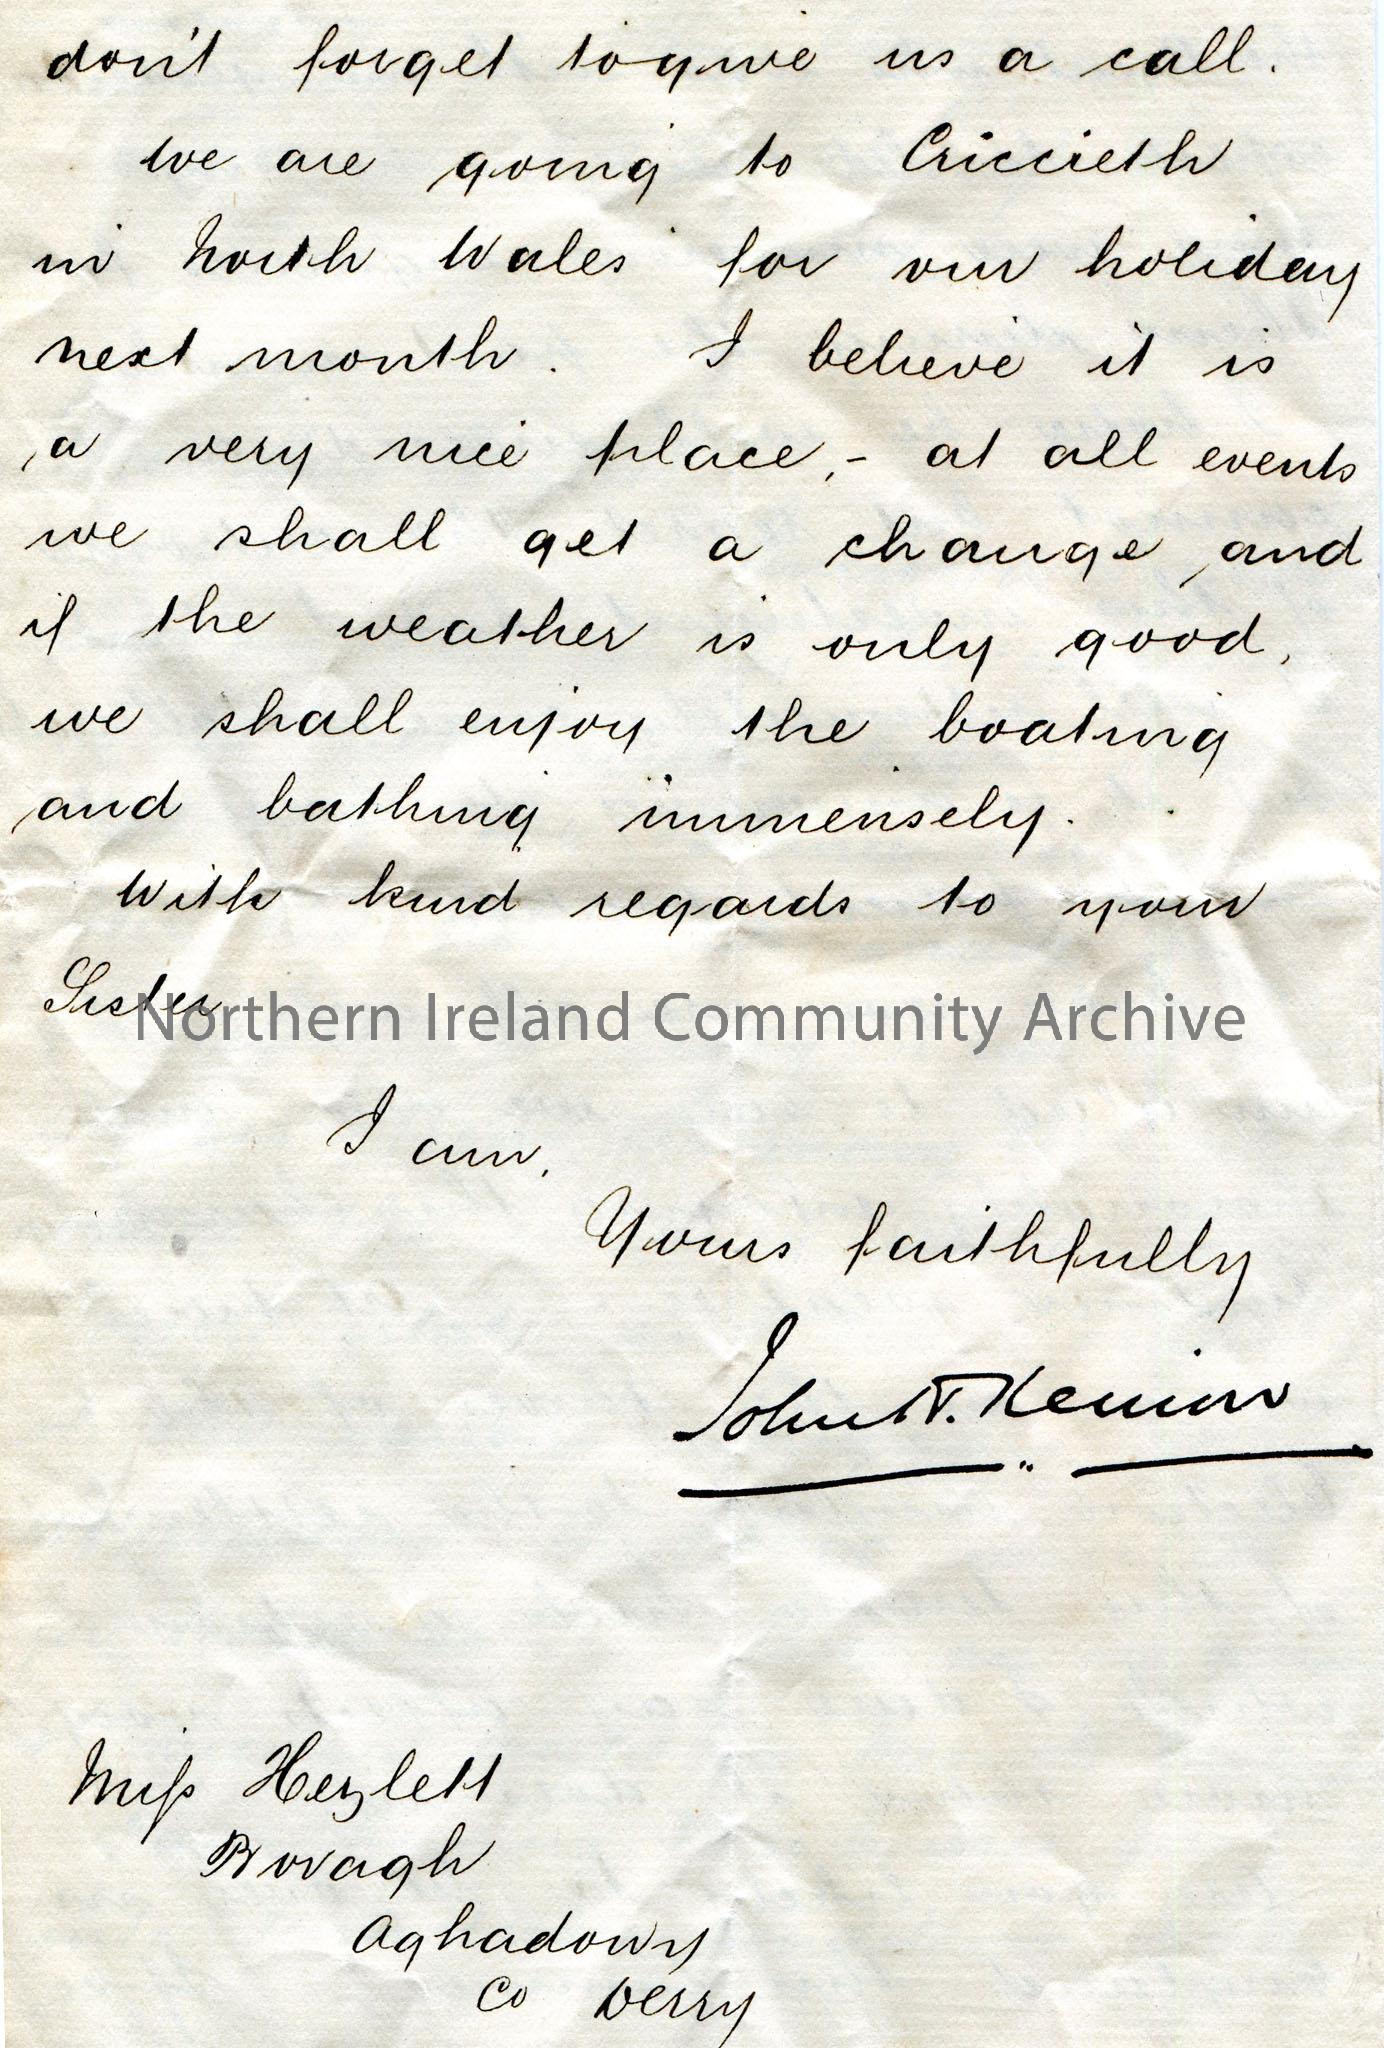 don't forget to give us a call.
We are going to Criccieth
in North Wales for our holiday
next month. I believe it is
a very nice place, - at all events
we shall get a change and
if the weather is only good,
we shall enjoy the boating
and bathing immensely.
With kind regards to your
Sister
Northern Ireland Community Archive
I am,
Yours faithfully
John
Miss Hezlett
Bovagh
Aghadowy
Co Derry